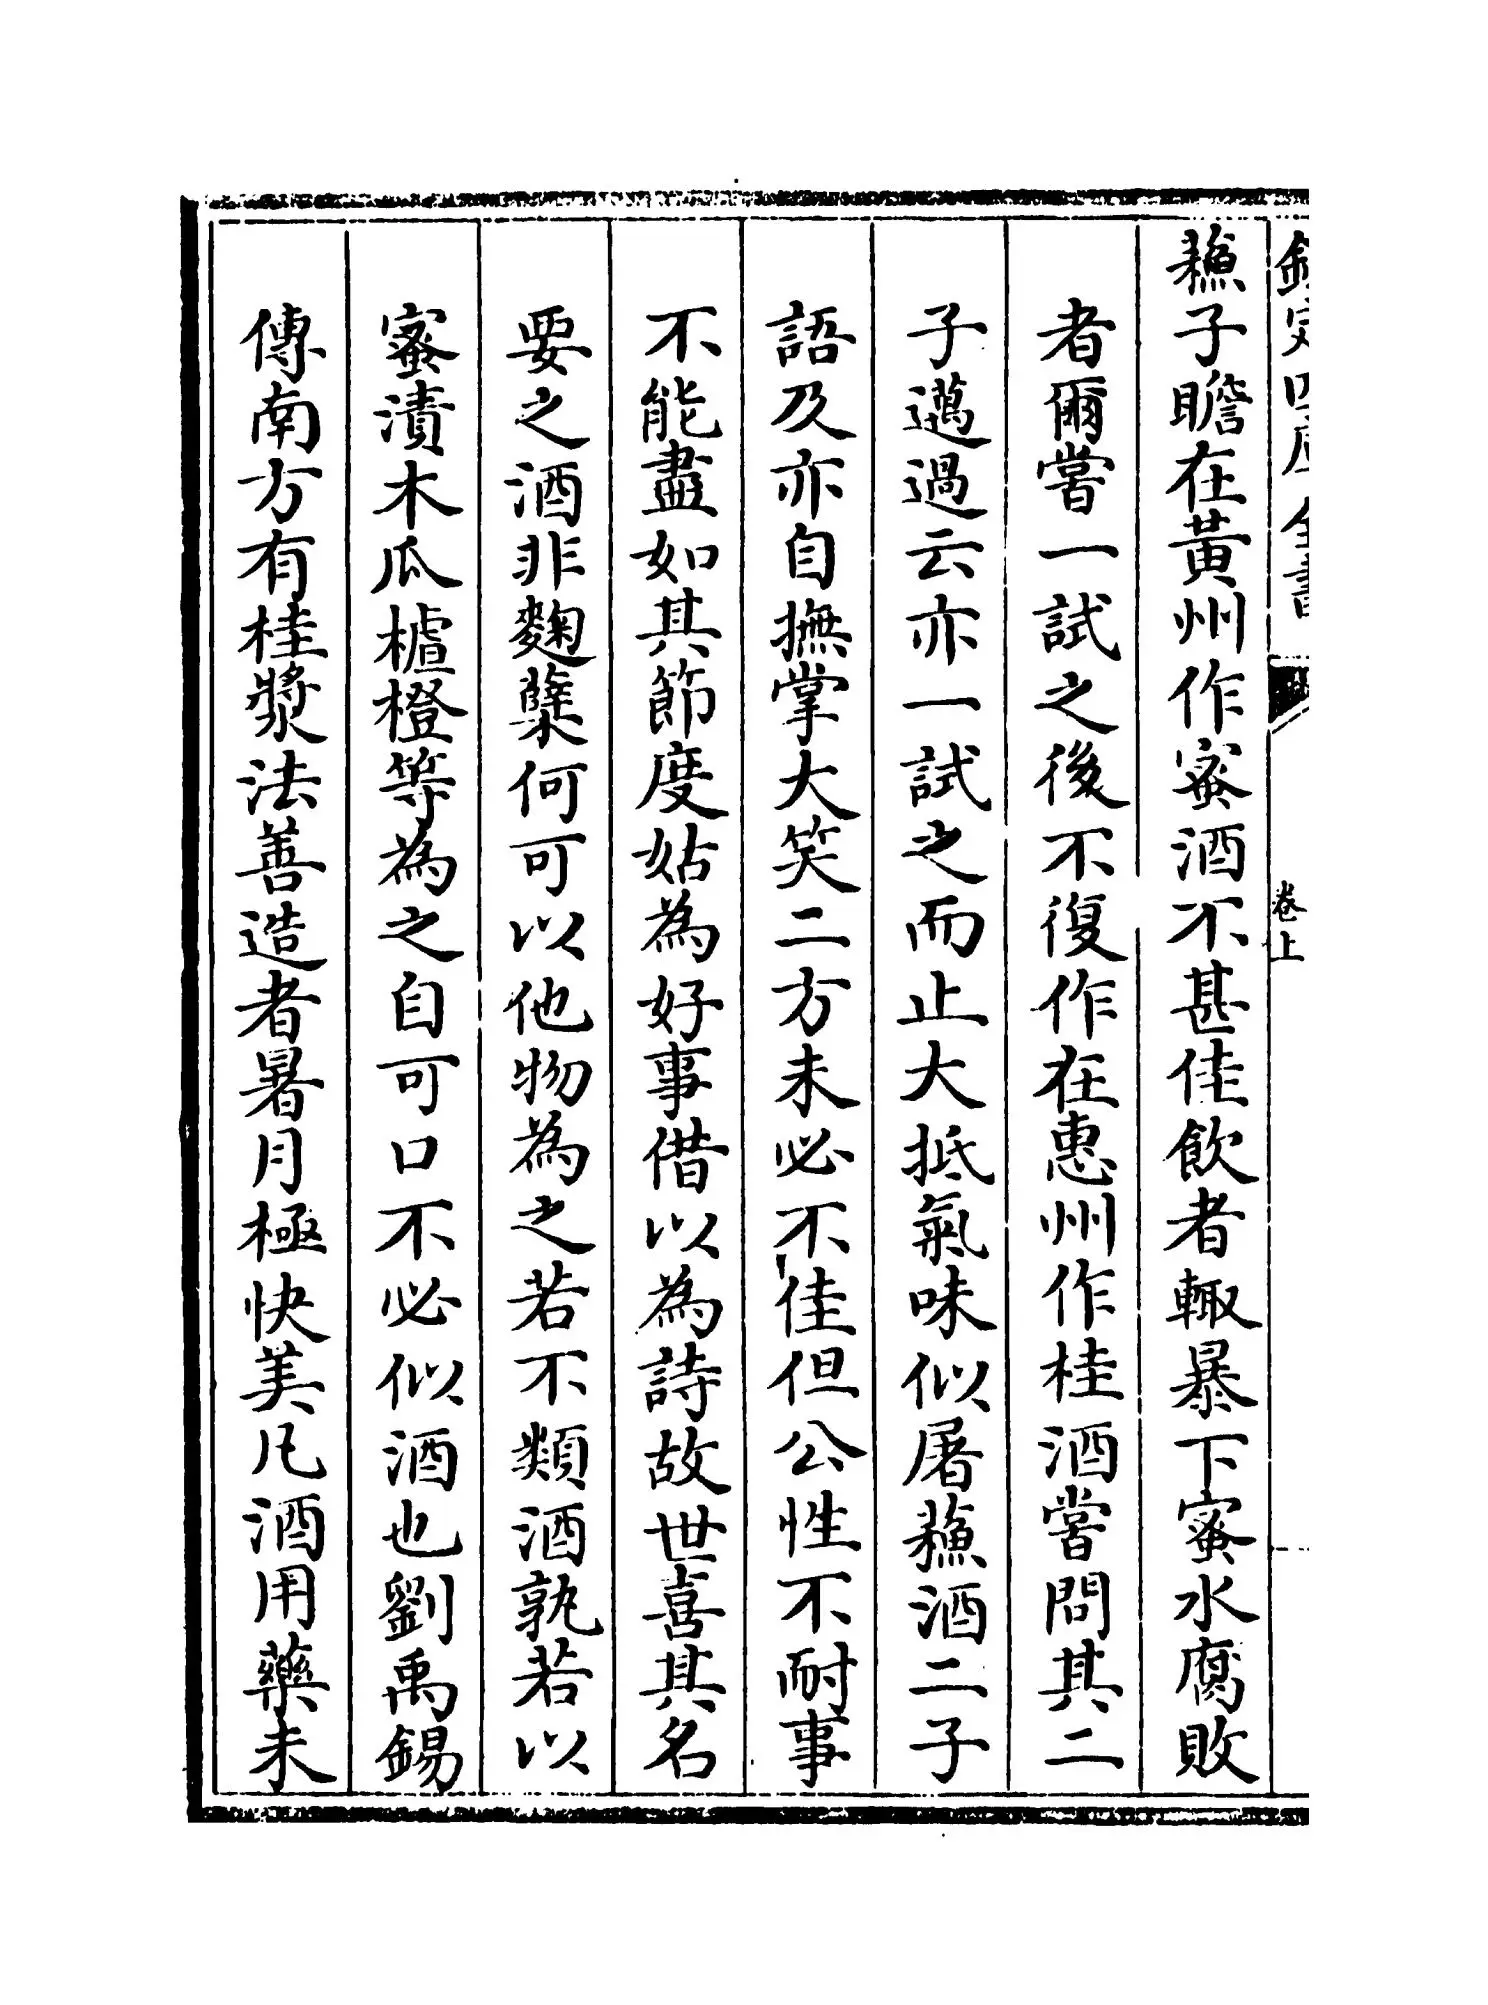 欽定四庫全書
卷上
蘓子瞻在黃州作蜜酒不甚佳飲者輙暴下蜜水腐敗
者爾嘗一試之後不復作在惠州作桂酒嘗問其二
子邁過云亦一試之而止大抵氣味似屠蘓酒二子
語及亦自撫掌大笑二方未必不佳但公性不耐事
不能盡如其節度姑為好事借以為詩故世喜其名
要之酒非麴糵何可以他物為之若不類酒孰若以
蜜漬木瓜樝橙等為之自可口不必似酒也劉禹錫
傳南方有桂漿法善造者暑月極快美凡酒用藥未